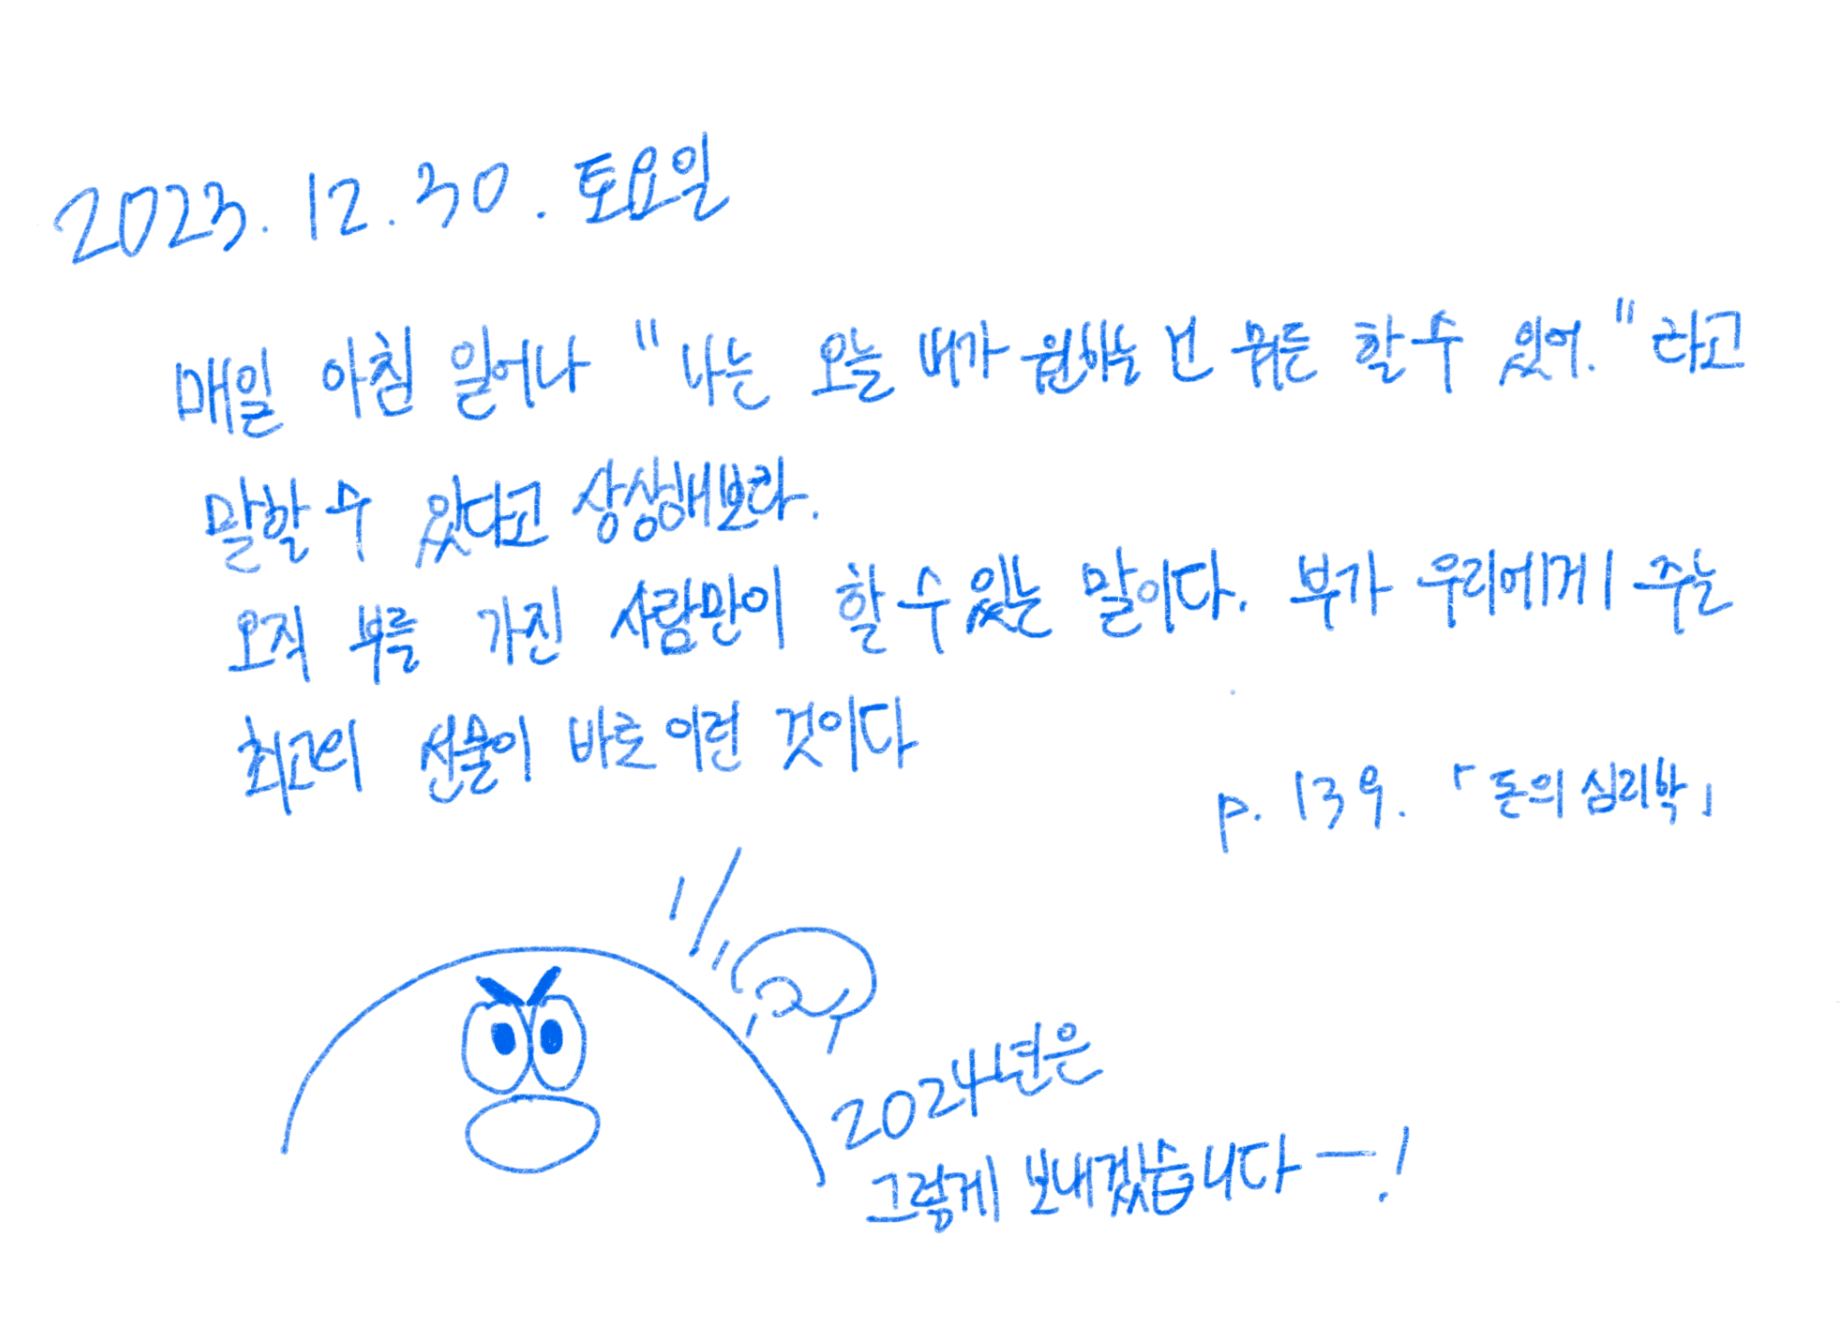 2023. 12. 30. 토요일
매일 아침 일어나 "나는 오늘 내가 원하는 건 뭐든 할 수 있어."라고
말할 수 있다고 상상해보라.
오직 부를 가진 사람만이 할 수 있는 말이다. 부가 우리에게 주는
최고의 선물이 바로 이런 것이다
p. 139. 「돈의 심리학」
2024년은
그렇게 보내겠습니다―!